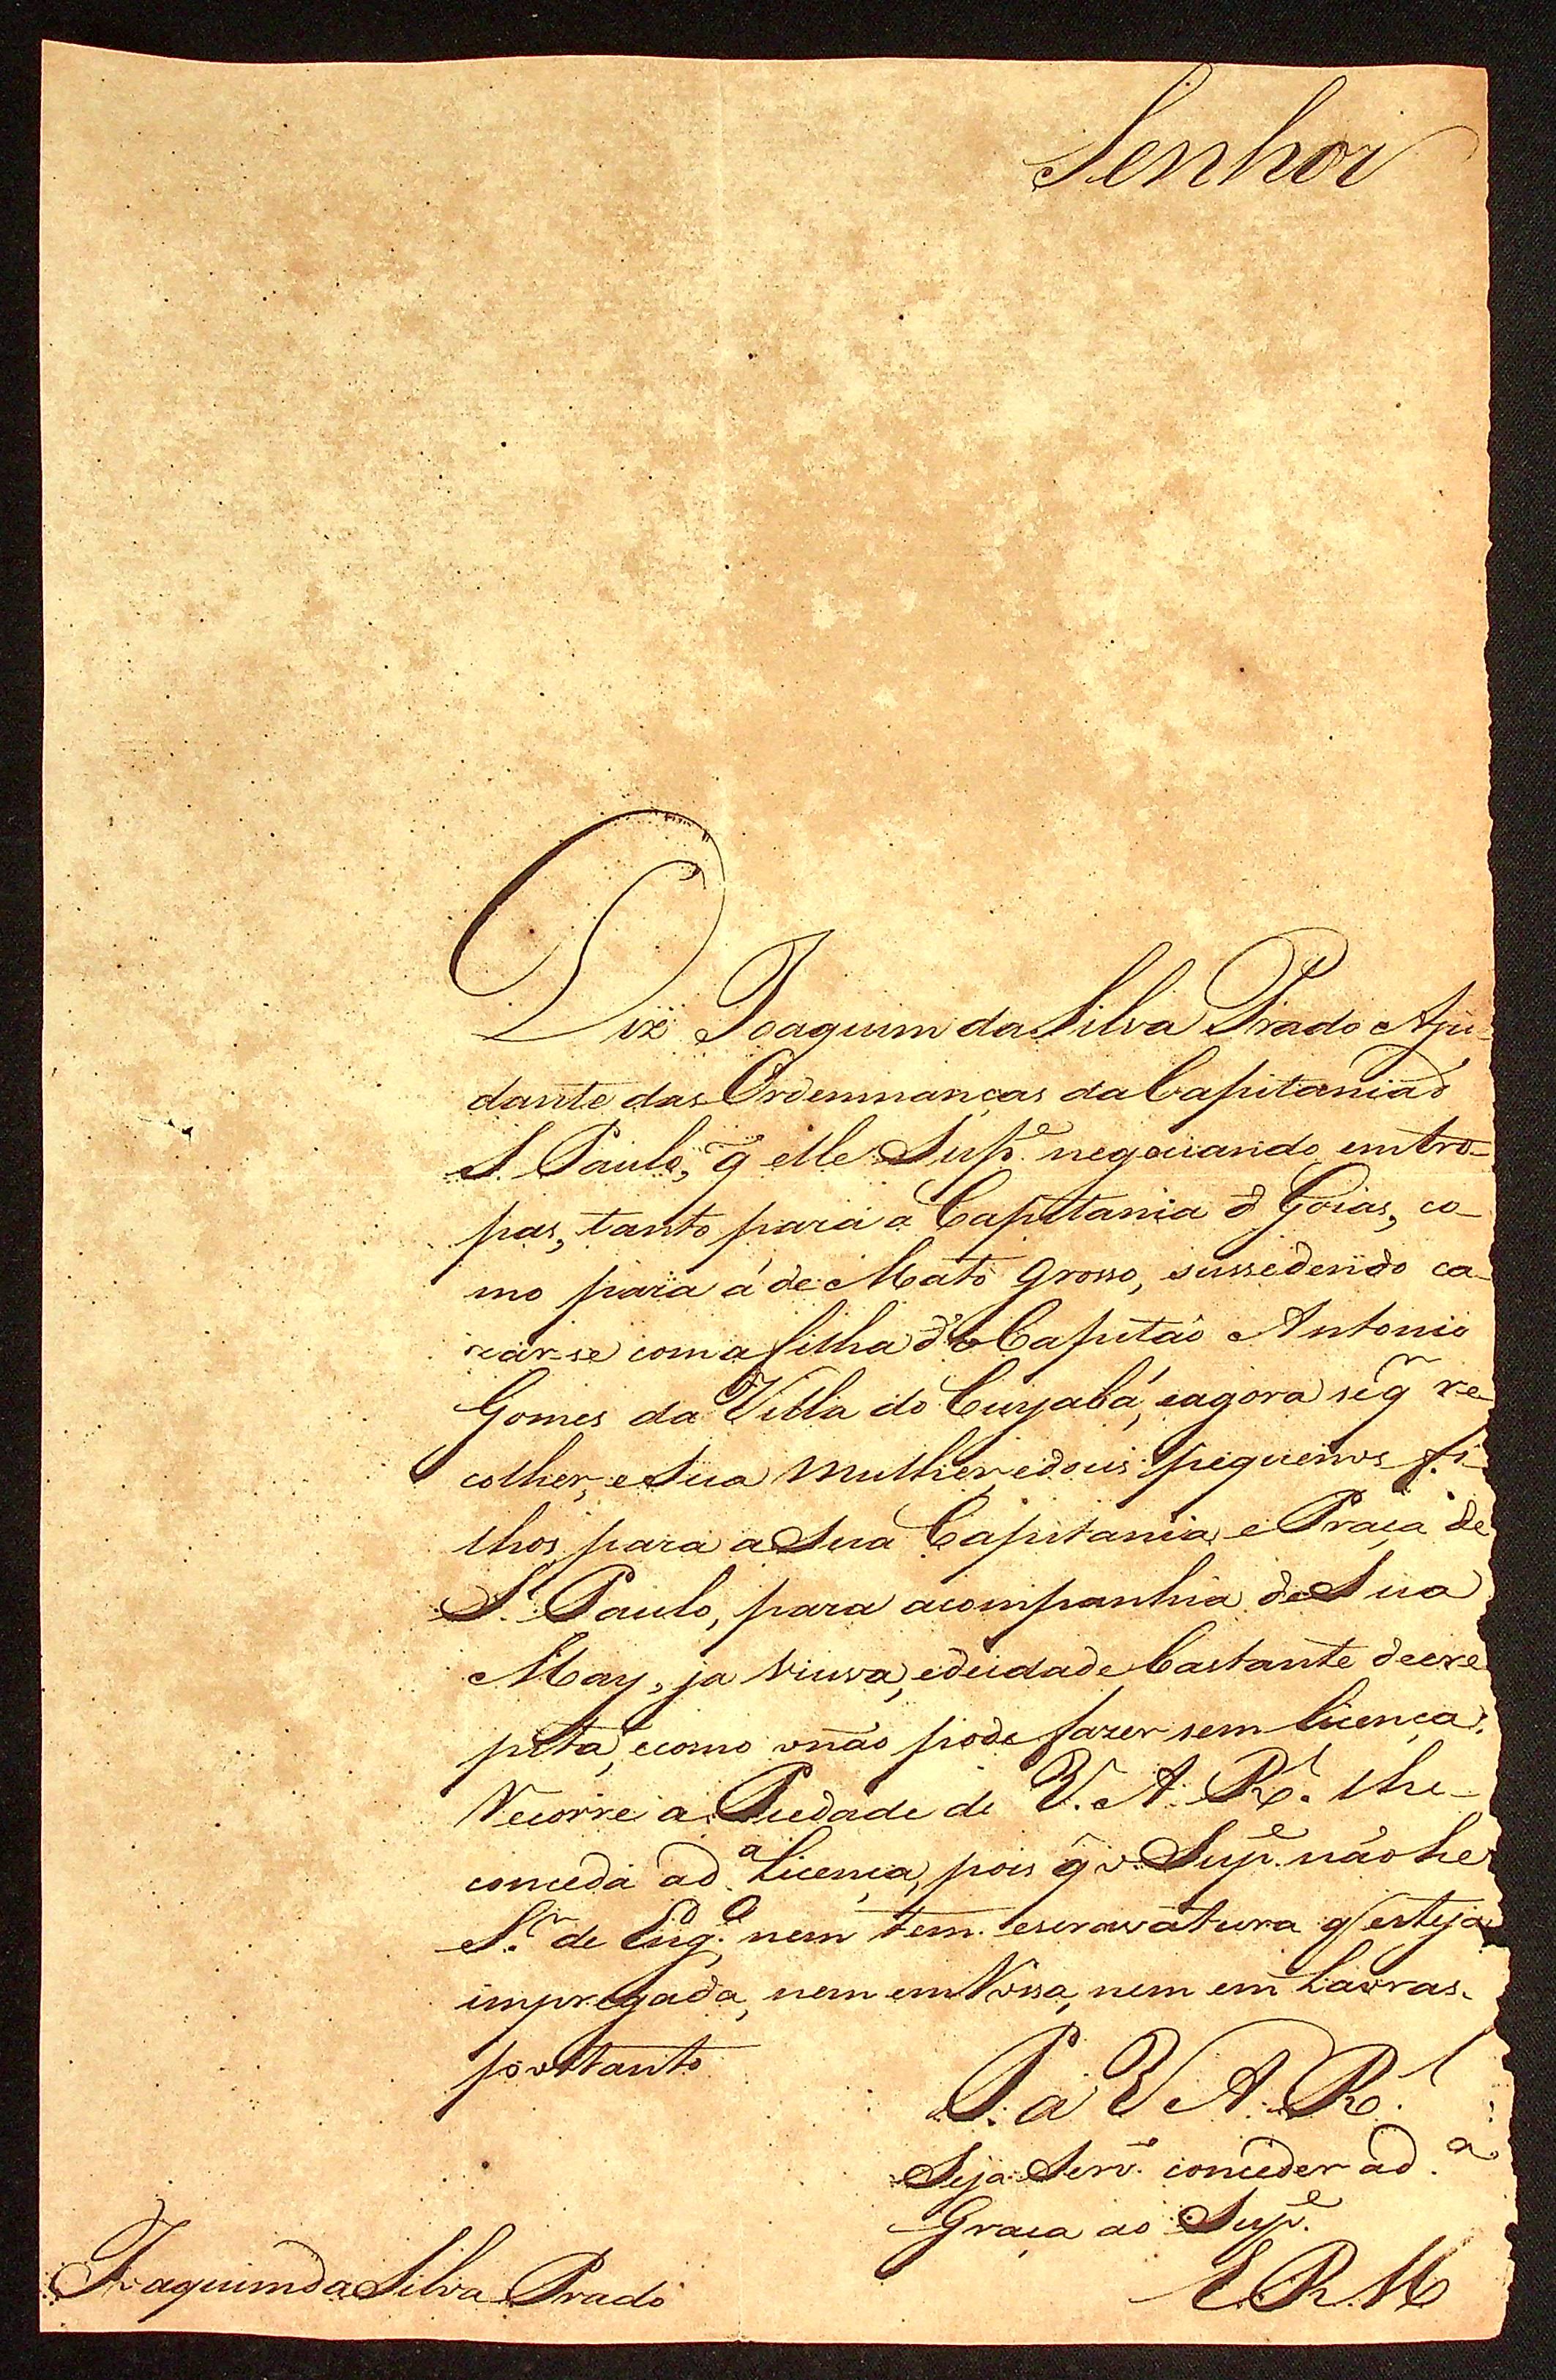 Senhor
Diz Joaquim da Silva Prado Aju-
dante das Ordennanças da Capitania d
S. Paulo, q̃ elle Sup.e negociando em tro-
pas, tanto para a Capitania d Goias, co-
mo para a de Mato Grosso, sussedendo ca-
zar-se com a filha do Capitão Antonio
Gomes da Villa do Cuyabá, e agora se q̃r re-
colher, e Sua Mulher, e dous piquenos fi-
lhos para a Sua Capitania e Praça de
S. Paulo, para acompanhia de Sua
May, ja viuva, e de idade bastante decre
pita, e como o não pode fazer sem licença.
Recorre a Piedade de V. A. R.l lhe-
conceda a d.a Licença, pois q̃ o Sup.e não he
S.r de Eng.o nem tem escravatura q esteja
impregada, nem em Rossa, nem em Lavras.
portanto
P. a V A. R.l
Seja Serv.o conceder a d.a
Graça ao Sup.e
E. R. M
Joaquim da Silva Prado